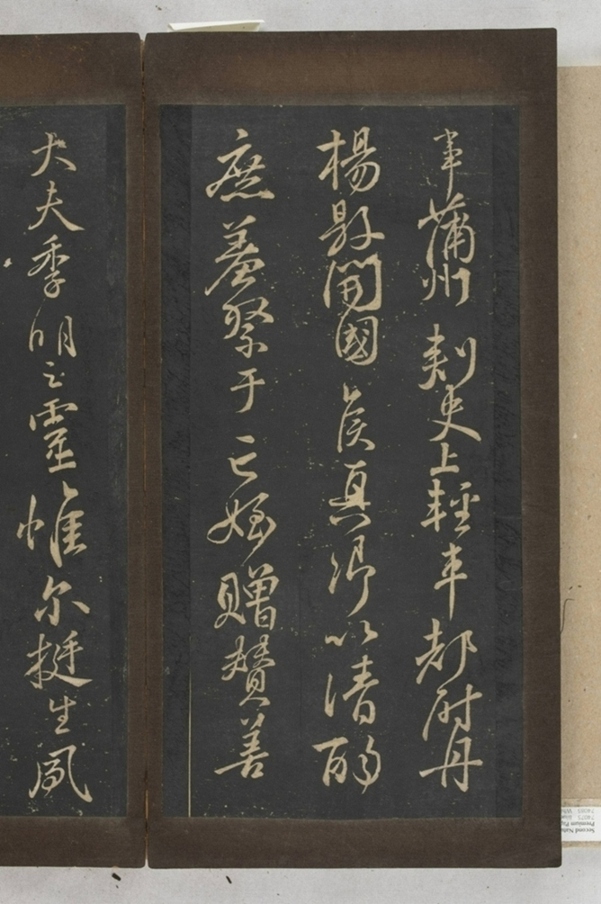 事蒲州刾史上輕車都尉丹
楊縣開國侯真卿以清酌
庶羞祭于亡姪贈贊善
大夫季明之靈惟尔挺生夙